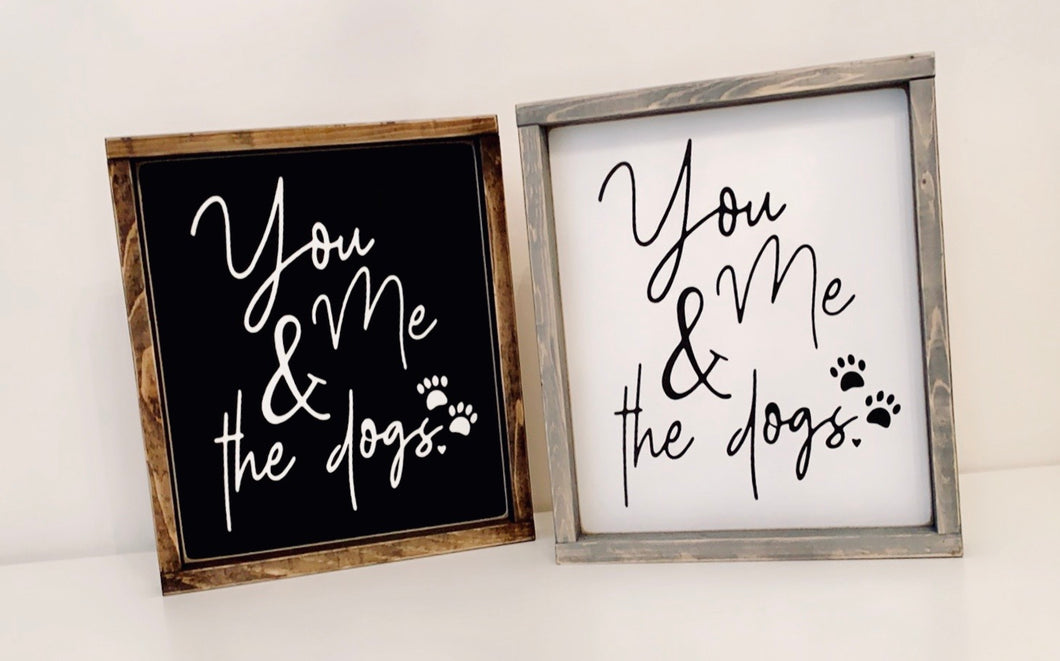 You
Me
&
the dogs.
You
Me
&
the dogs.